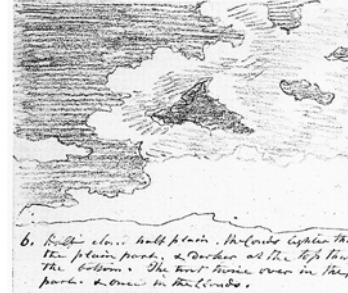 6. Half cloud half plain. the Clouds lighter th
the plain part. & Darker at the top than
the bottom. The tint twice over in the
part. & once in the Clouds.